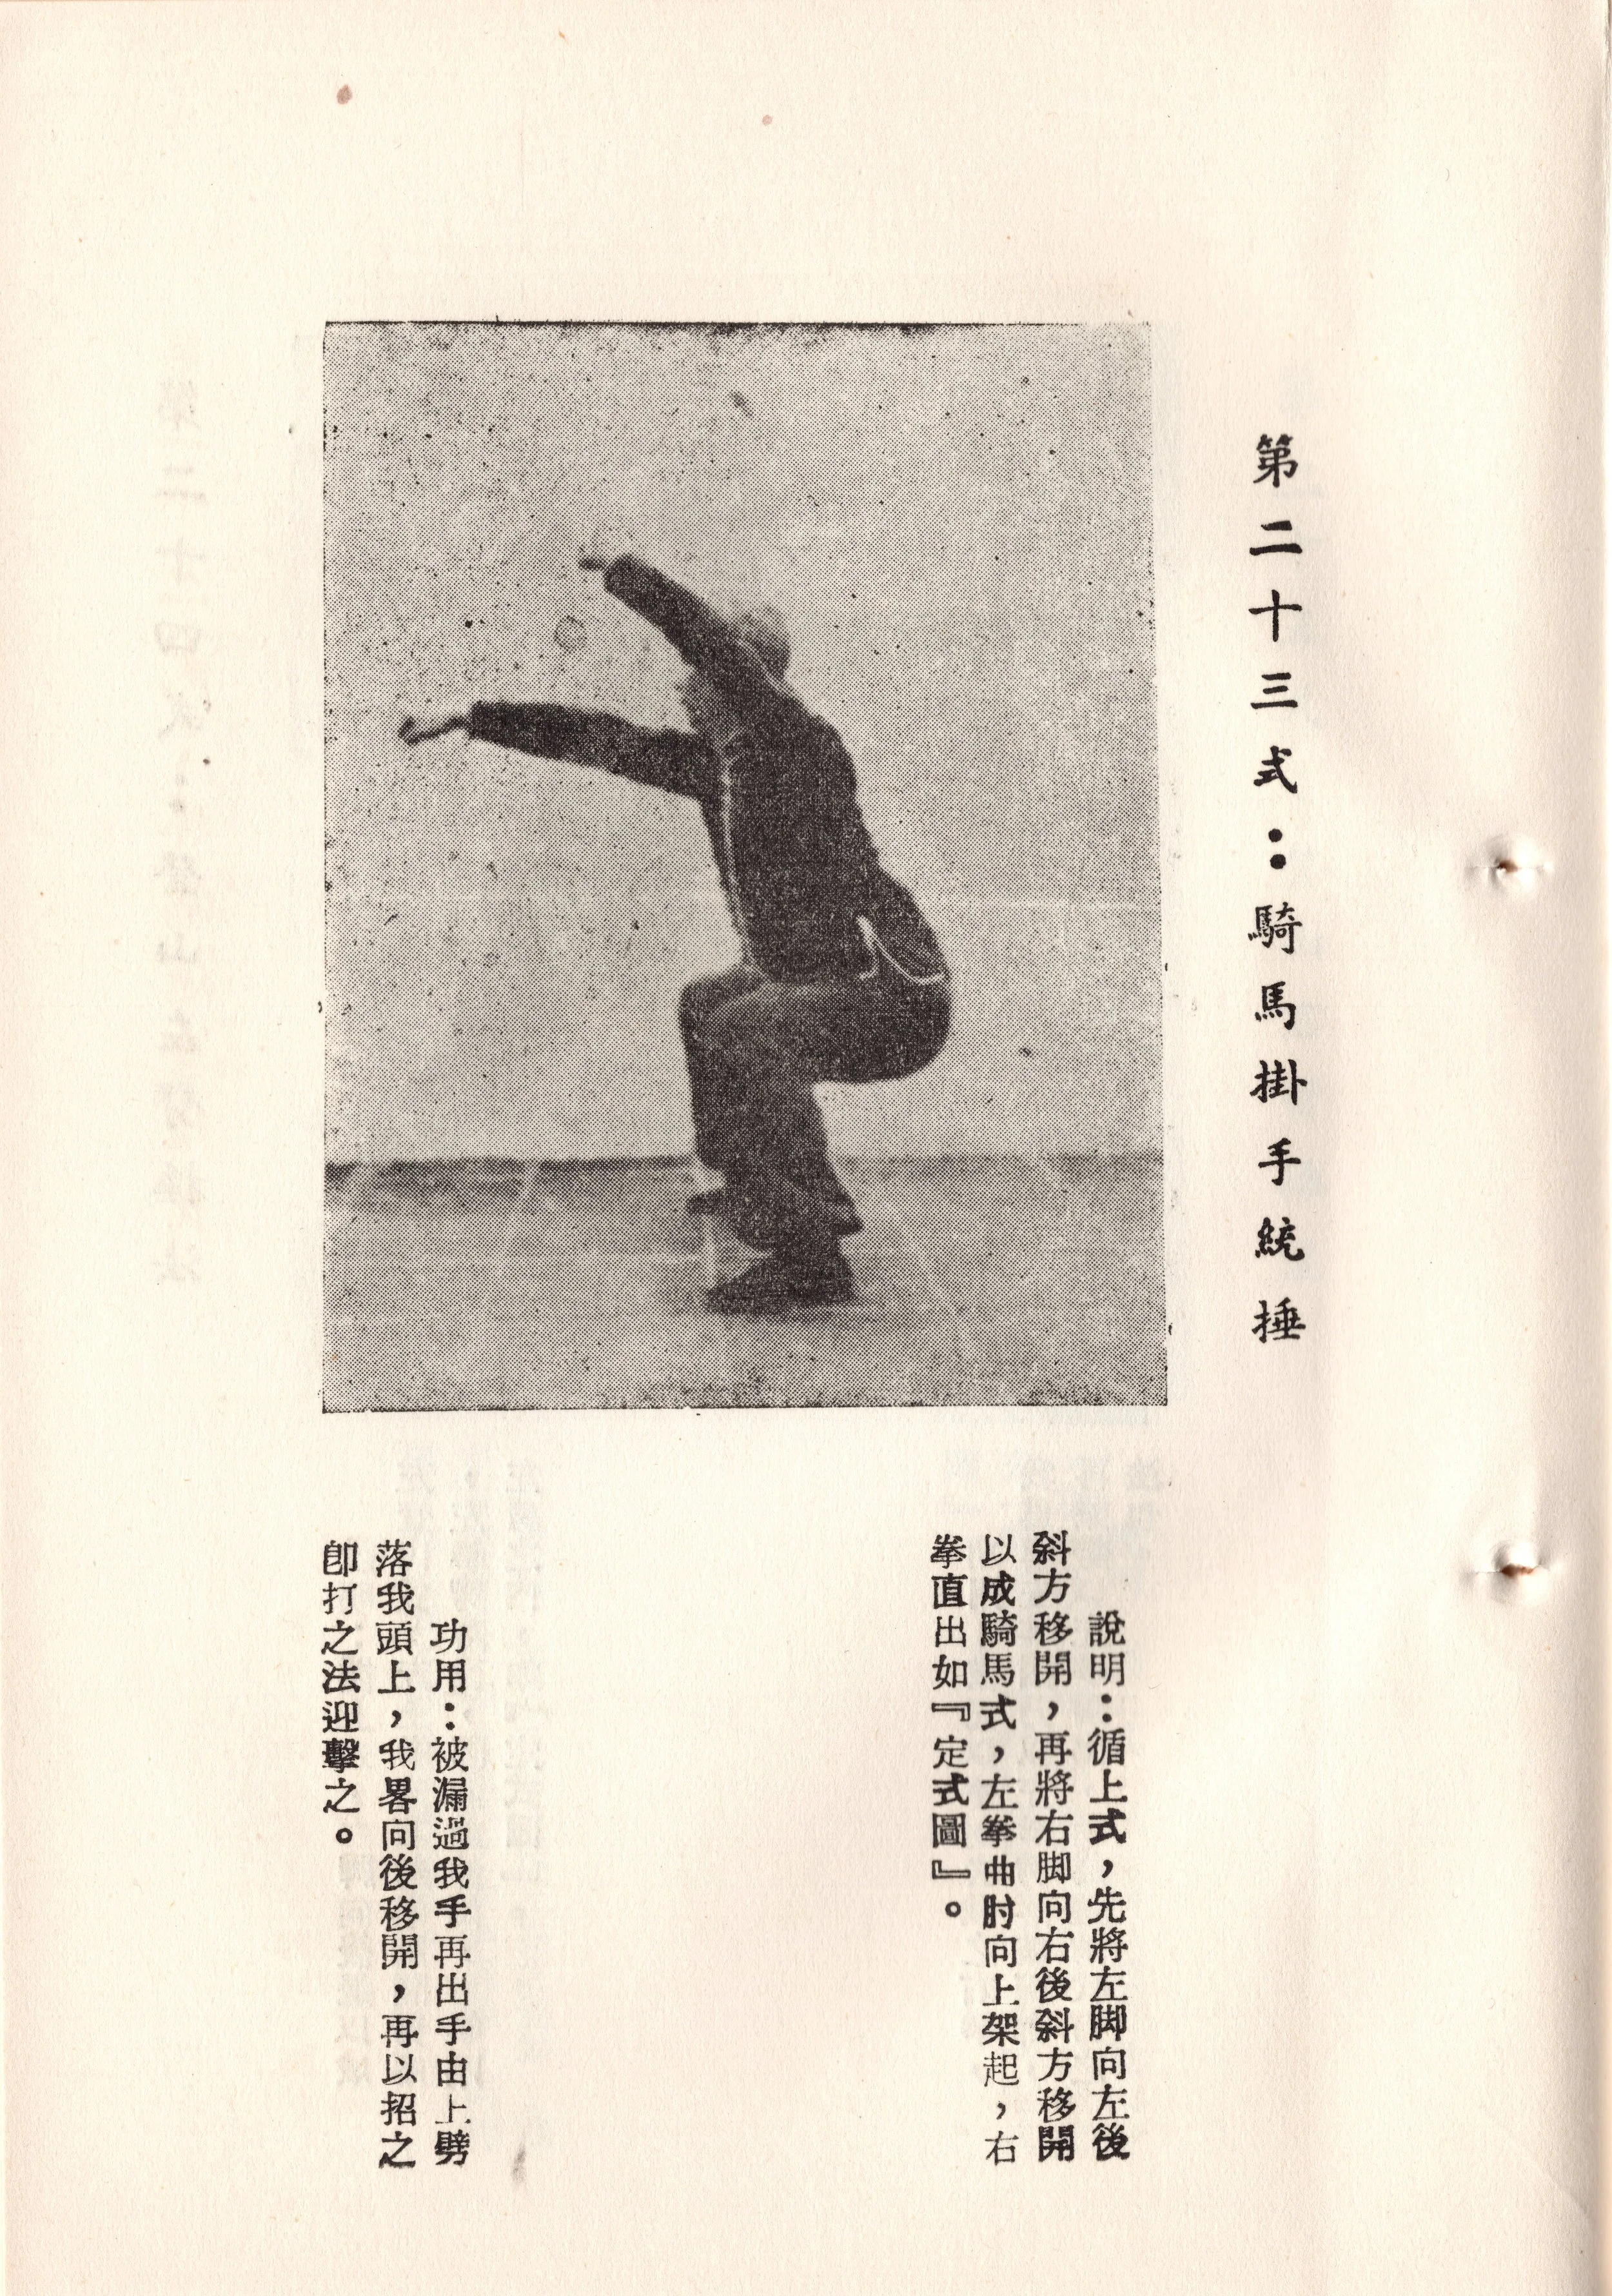 第二十三式：騎馬掛手統捶
說明：循上式，先將左脚向左後
斜方移開，再將右脚向右後斜方移開
以成騎馬式，左拳曲肘向上架起，右
拳直出如『定式圖』。
功用：被漏過我手再出手由上劈
落我頭上，我畧向後移開，再以招之
卽打之法迎擊之。